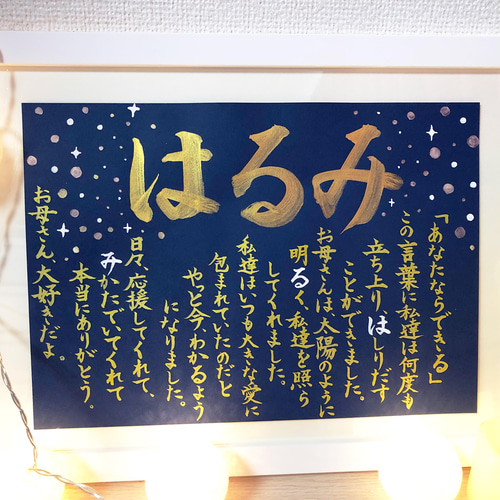 はるみ
「あなたならできる」
この言葉に私達は何度も
立ち上りはしりだす
ことができました。
お母さんは太陽のように
明るく、私達を照ら
してくれました。
私達はいつも大きな愛に
包まれていたのだと
やっと今、わかるよう
になりました。
日々、応援してくれて、
みかたでいてくれて
本当にありがとう。
お母さん、大好きだよ。